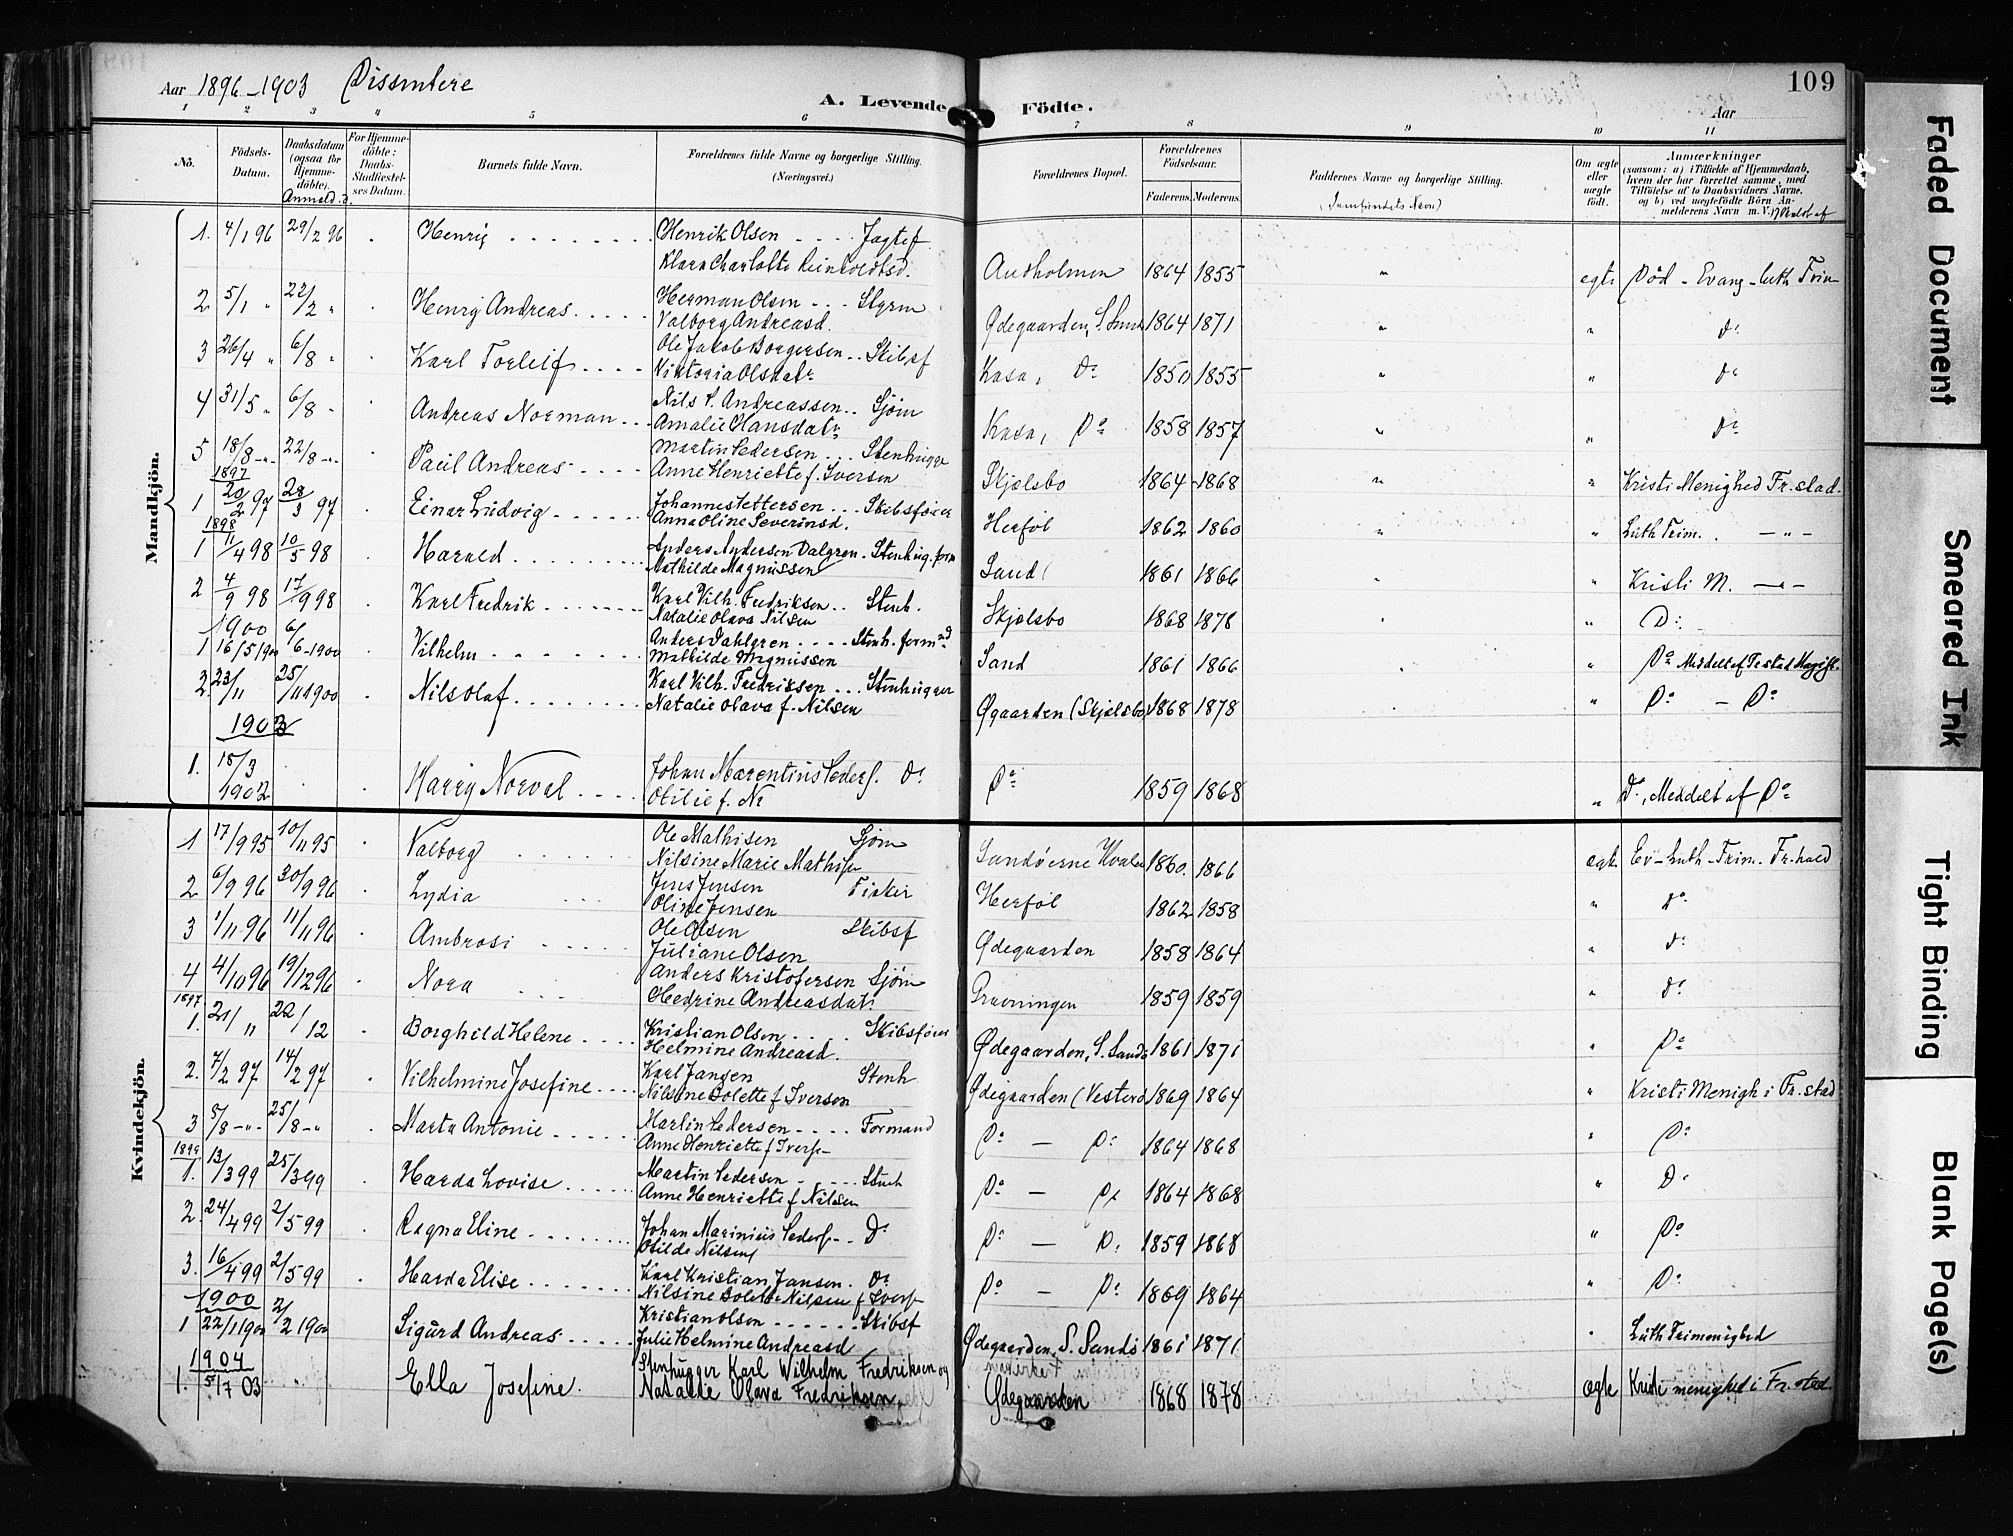 Aar 1896-1903 Dissentere
A. Levende Födte.
Aar
109
1 2 3 4 5 6 7 8 9 10 11
No. Födsels-Datum. Daabsdatum (ogsaa for Hjemmedöbte). Anmeld. d. For Hjemmedöbte: Daabs-Stadfæstelses Datum. Barnets fulde Navn. Forældrenes fulde Navne og borgerlige Stilling. (Næringsvei.) Forældrenes Bopæl. Forældrenes Födselsaar. Faderens. Moderens. Faddernes Navne og borgerlige Stilling. (Samfundets Navn) Om ægte eller uægte födt. Anmærkninger (saasom: a) i Tilfælde af Hjemmedaab, hvem der har forrettet samme, med Tilföielse af to Daabsvidners Navne, og b) ved uægtefödte Börn Anmelderens Navn m. V.)
Mandkjön.
1. 4/1 96 29/2 96 Henrig Henrik Olsen Jagtef.
Klara Charlotte Reinholdtsd. Audholmen 1864 1855 " egte Död - Evang - luth Frim
2 5/1 " 22/2 " Henrig Andreas Herman Olsen Styrm
Valborg Andreasd. Ødegaarden, S. Sand 1864 1871 " " do
3 26/4 " 6/8 " Karl Torleif Ole Jakob Borgersen Skibsf
Viktoria Olsdatr Kasa, Do 1850 1855 " " do
4 31/5 " 6/8 " Andreas Norman Nils P. Andreassen Sjøm
Amalie Hansdatr Kasa, Do 1858 1857 " " Do
5 18/8 -"- 22/8 -"- Paul Andreas Martin Pedersen Stenhugge
Anne Henriette f. Iversen Skjælsbo 1864 1868 " " Kristi Menighed Fr.stad.
1897
1 20/2 97 28/3 97 Einar Ludvig Johannes Pettersen Skibsfører
Anna Oline Severinsd. Herføl 1862 1860 " " Luth Frim. - " -
1898
1 11/4 98 10/5 98 Harald Anders Andersen Dalgren Stenhug. form
Mathilde Magnussen Sand 1861 1866 " Kristi M. - " -
2 4/9 98 17/9 98 Karl Fredrik Karl Vilh. Fredriksen Stenh.
Natalie Olava Nilsen Skjælsbo 1868 1878 " Do
1900
1 16/5 1900 6/6 1900 Vilhelm Anders Dahlgren Stenh. formd
Mathilde Magnussen Sand 1861 1866 " Do Meddelt af Fr.stad Magist.
2 23/11 25/11 1900 Nils Olaf Karl Vilh. Fredriksen Stenhugger
Natalie Olava f. Nilsen Øgaarden (Skjælsbo) 1868 1878 " Do - Do
1903
1. 18/3 1902 Harry Norval Johan Marentius Peders. Do
Otilie f. Do 1859 1868 " Do, Meddelt af Do
Kvindekjön.
1 17/9 95 10/11 95 Valborg Ole Mathisen Sjøm
Nilsine Marie Mathis Sandøerne Hvaler 1860. 1866 egte Ev-Luth-Frim. Fr.hald
2 6/9 96 30/9 96 Lydia Jens Jensen Fisker
Oline Jensen Herføl 1862 1858 " do
3 1/11 96 11/11 96 Ambrosi Ole Olsen Skibsf
Juliane Olsen Ødegaarden 1858 1864 " do
4 4/10 96 19/12 96 Nora Anders Kristofersen Sjøm
Hedrine Andreasdatr Grønningen 1859 1859 " do
1897
1. 21/11 22/12 Borghild Helene Kristian Olsen Skibsfører
Helmine Andreasd. Ødegaarden, S. Sandø 1861 1871 " Do
2. 7/2 97 14/2 97 Vilhelmine Josefine Karl Jansen Stenh
Nilsine Bolette f Iversen Ødegaarden (Vesterø 1869 1864 " Kristi Menigh i Fr.stad
3 5/8 -"- 25/8 -" Marta Antonie Martin Pedersen Formand
Anne Henriette f Ivers Do - Do 1864 1868 " Do
1899
1. 13/3 99 25/3 99 Harda Lovise Martin Pedersen Stenh
Anne Henriette f Nilsen Do - Do 1864 1868 " Do
2. 24/4 99 2/5 99 Ragna Eline Johan Marinius Peders Do
Otilde Nilsen Do - Do 1859 1868 " Do
3. 16/4 99 2/5 99 Harda Elise Karl Kristian Jansen. Do
Nilsine Bolette Nilsen f Ivers Do - Do 1869 1864 " Do
1900
1 22/1 1900 2/2 1900 Sigurd Andreas Kristian Olsen Skibsf
Julie Helmine Andreasd Ødegaarden, S. Sandø 1861 1871 " Luth Frimenighed
1904
1. 5/7 03 Ella Josefine. Stenhugger Karl Wilhelm Fredriksen og
Natalie Olava Fredriksen. Ødegaarden 1868 1878 ægte Kristi menighed i Fr.stad
Faded Document
Smeared Ink
Tight Binding
Blank Page(s)